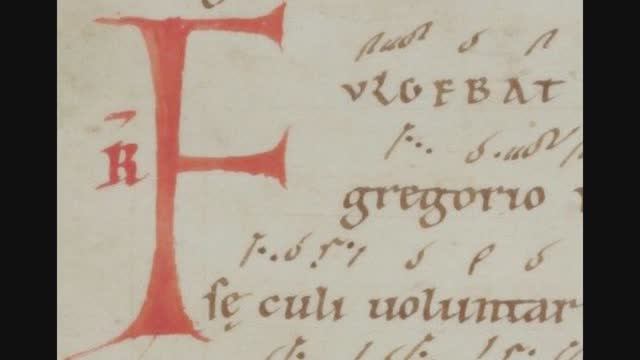 ℟ FVLGEBAT
gregorio
sę culi uoluntar